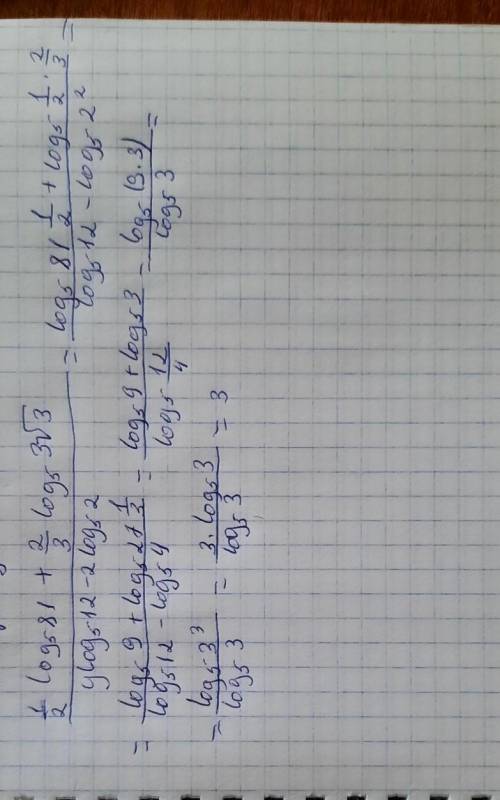 1/2 log₅81 + 2/3 log₅3√3 / log₅12 - 2log₅2 = log₅81^(1/2) + log₅ 1/2 · 2/3 / log₅12 - log₅2² =
= log₅9 + log₅27^(1/3) / log₅12 - log₅4 = log₅9 + log₅3 / log₅ 12/4 = log₅(9·3) / log₅3 =
= log₅3³ / log₅3 = 3·log₅3 / log₅3 = 3